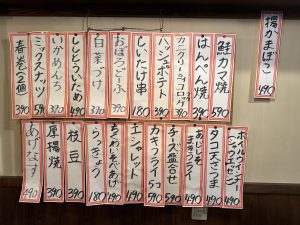 揚かまぼこ 490
鮭カマ焼 590
はんぺん焼 390
カニクリーミィコロッケ 390
ハッシュポテト 390
しいたけ串 180
おぼろどーふ 390
白菜づけ 390
ししとういため 490
いかめんち 390
ミックスナッツ 590
春巻(2個) 390
ホイルウインナー 490
タコ天さつま 490
あじしそまきフライ 490
チーズ盛合せ 590
カキフライ5コ 590
エシャレット 490
ちくわいそべあげ 490
らっきょう 180
枝豆 390
厚揚焼 390
あげなす 490